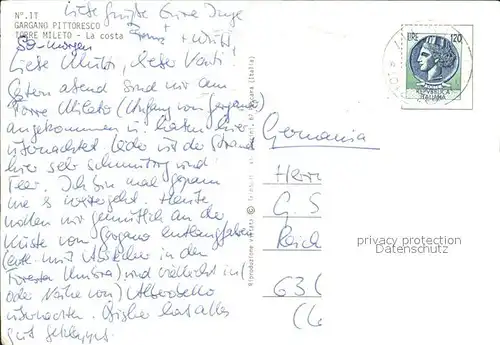 Liebe Grüße Eure Inge
N°.IT
GARGANO PITTORESCO + Willi
TORRE MILETO - La costa
So-morgen
Liebe Mutti, lieber Vati
Gestern abend sind wir am
Torre Mileto (Anfang vom Gargano)
angekommen u. haben hier
übernachtet. Leider ist der Strand
hier sehr schmutzig und
Teer. Ich bin mal gespannt
wie es weitergeht. Heute
wollen wir gemütlich an der
Küste vom Gargano entlangfahren
(evtl. mit Abstecher in den
Foresta Umbra) und vielleicht in
(oder Nähe von) Alberobello
übernachten. Bisher hat alles
gut geklappt.
Riproduzione vietata
(Italia)
LIRE 120
REPVBBLICA
ITALIANA
Germania
Herrn
G. S
Reich
63
(6
privacy protection
Datenschutz